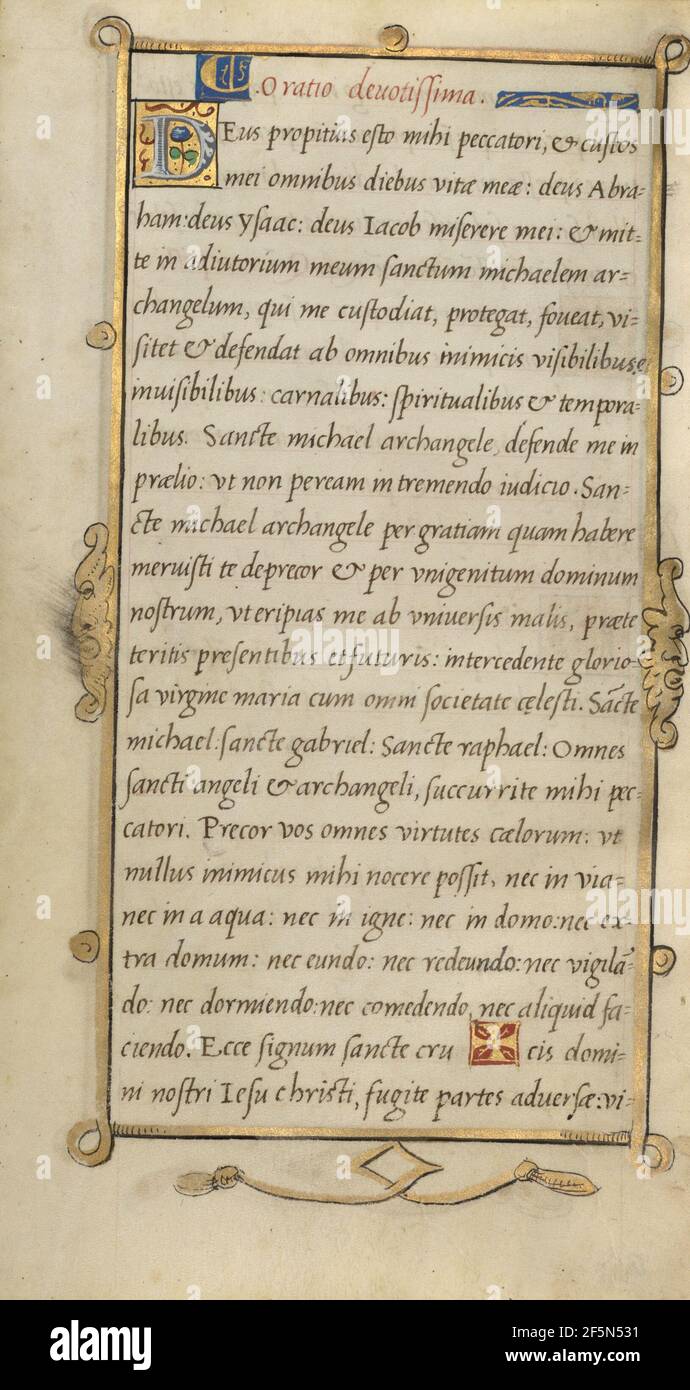 .Oratio deuotissima.
DEus propitius esto mihi peccatori, & custos
mei omnibus diebus vitæ meæ: deus Abra=
ham: deus ysaac: deus Iacob miserere mei: & mit=
te in adiutorium meum sanctum michaelem ar=
changelum, qui me custodiat, protegat, foueat, vi=
sitet & defendat ab omnibus inimicis visibilibus, e
inuisibilibus: carnalibus: spiritualibus & tempora=
libus. Sancte michael archangele, defende me in
prælio: vt non peream in tremendo iudicio. San=
cte michael archangele per gratiam quam habere
meruisti te deprecor & per vnigenitum dominum
nostrum, vt eripias me ab vniuersis malis, præte
teritis presentibus et futuris: intercedente glorio=
sa virgine maria cum omni societate cęlesti. Sācte
michael: sancte gabriel: Sancte raphael: Omnes
sancti angeli & archangeli, succurrite mihi pec=
catori. Precor vos omnes virtutes cælorum: vt
nullus inimicus mihi nocere possit, nec in via=
nec in a aqua: nec in igne: nec in domo: nec ex=
tra domum: nec eundo: nec redeundo: nec vigilā=
do: nec dormiendo: nec comedendo, nec aliquid fa=
ciendo. Ecce signum sancte cru cis domi=
ni nostri Iesu christi, fugite partes aduersæ: vi=
alamy
alamy
Image ID: 2F5N531
www.alamy.com